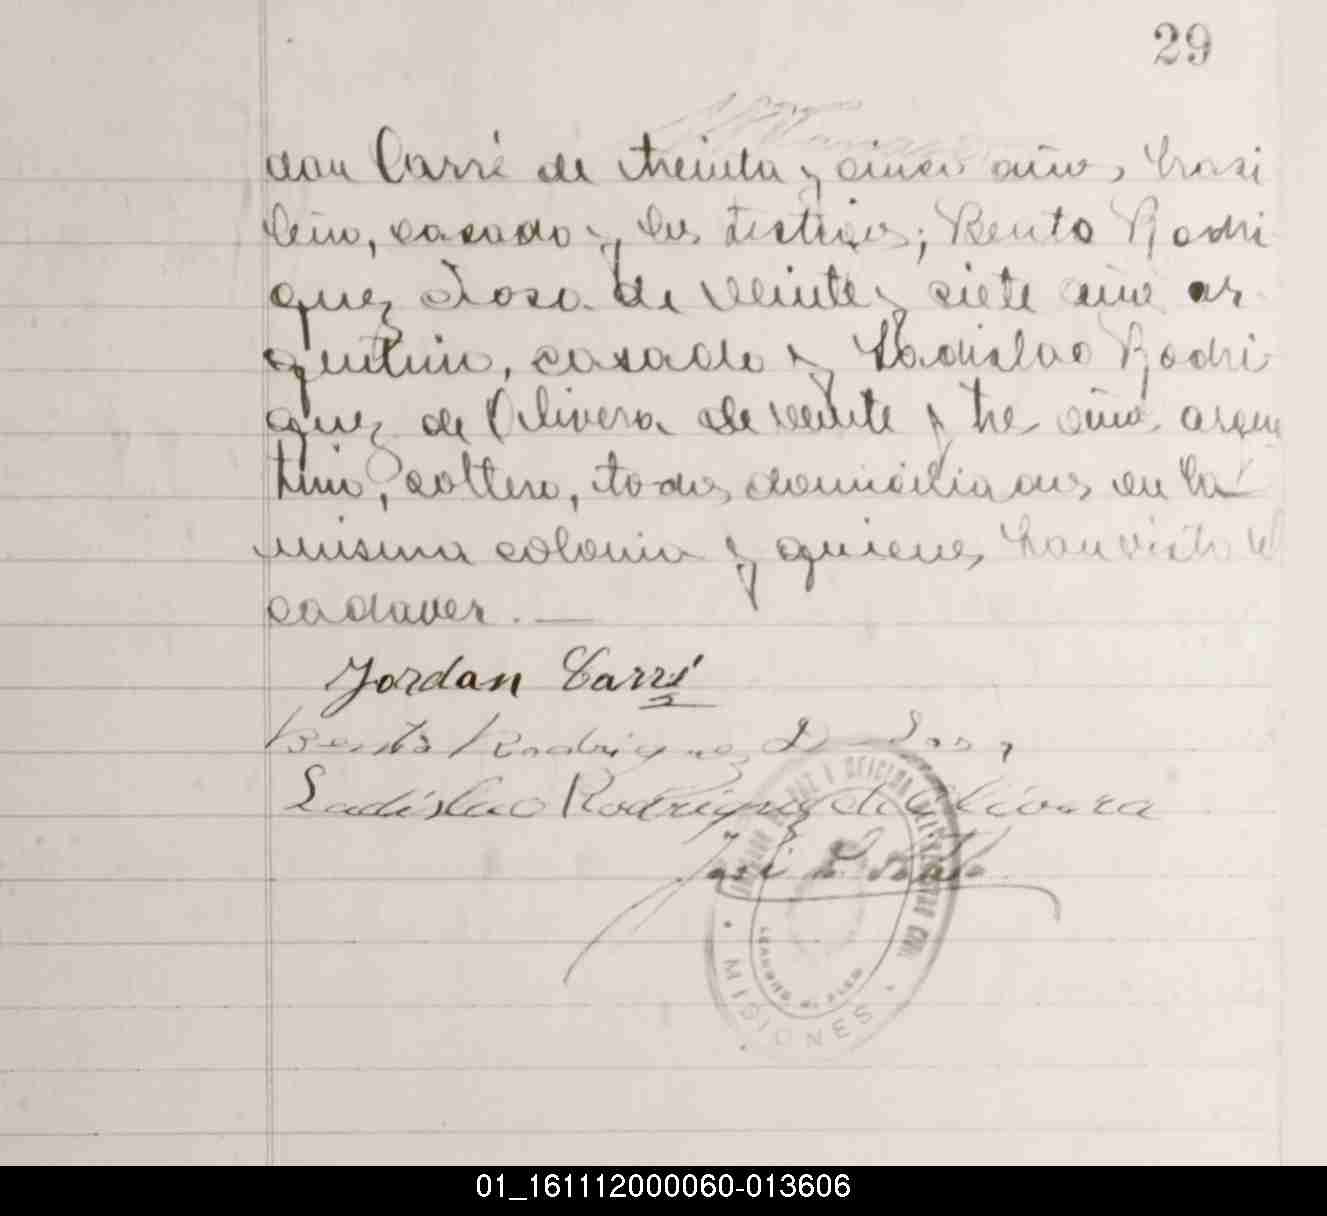 29
dan Carré de treinta y cinco años, brasi
leño, casado y los testigos; Bento Rodri
guez Dosa de veinte y siete años ar
gentino, casado y Ladislao Rodri
guez de Olivera de veinte y tre años argen
tino, soltero, todos domiciliados en la
misma colonia y quienes han visto el
cadaver. —
Jordan Carré
Bento Rodriguez D
Ladislao Rodriguez de Olivera
José
JUZGADO DE PAZ Y OFICINA DEL REGISTRO CIVIL
MISIONES
01_161112000060-013606